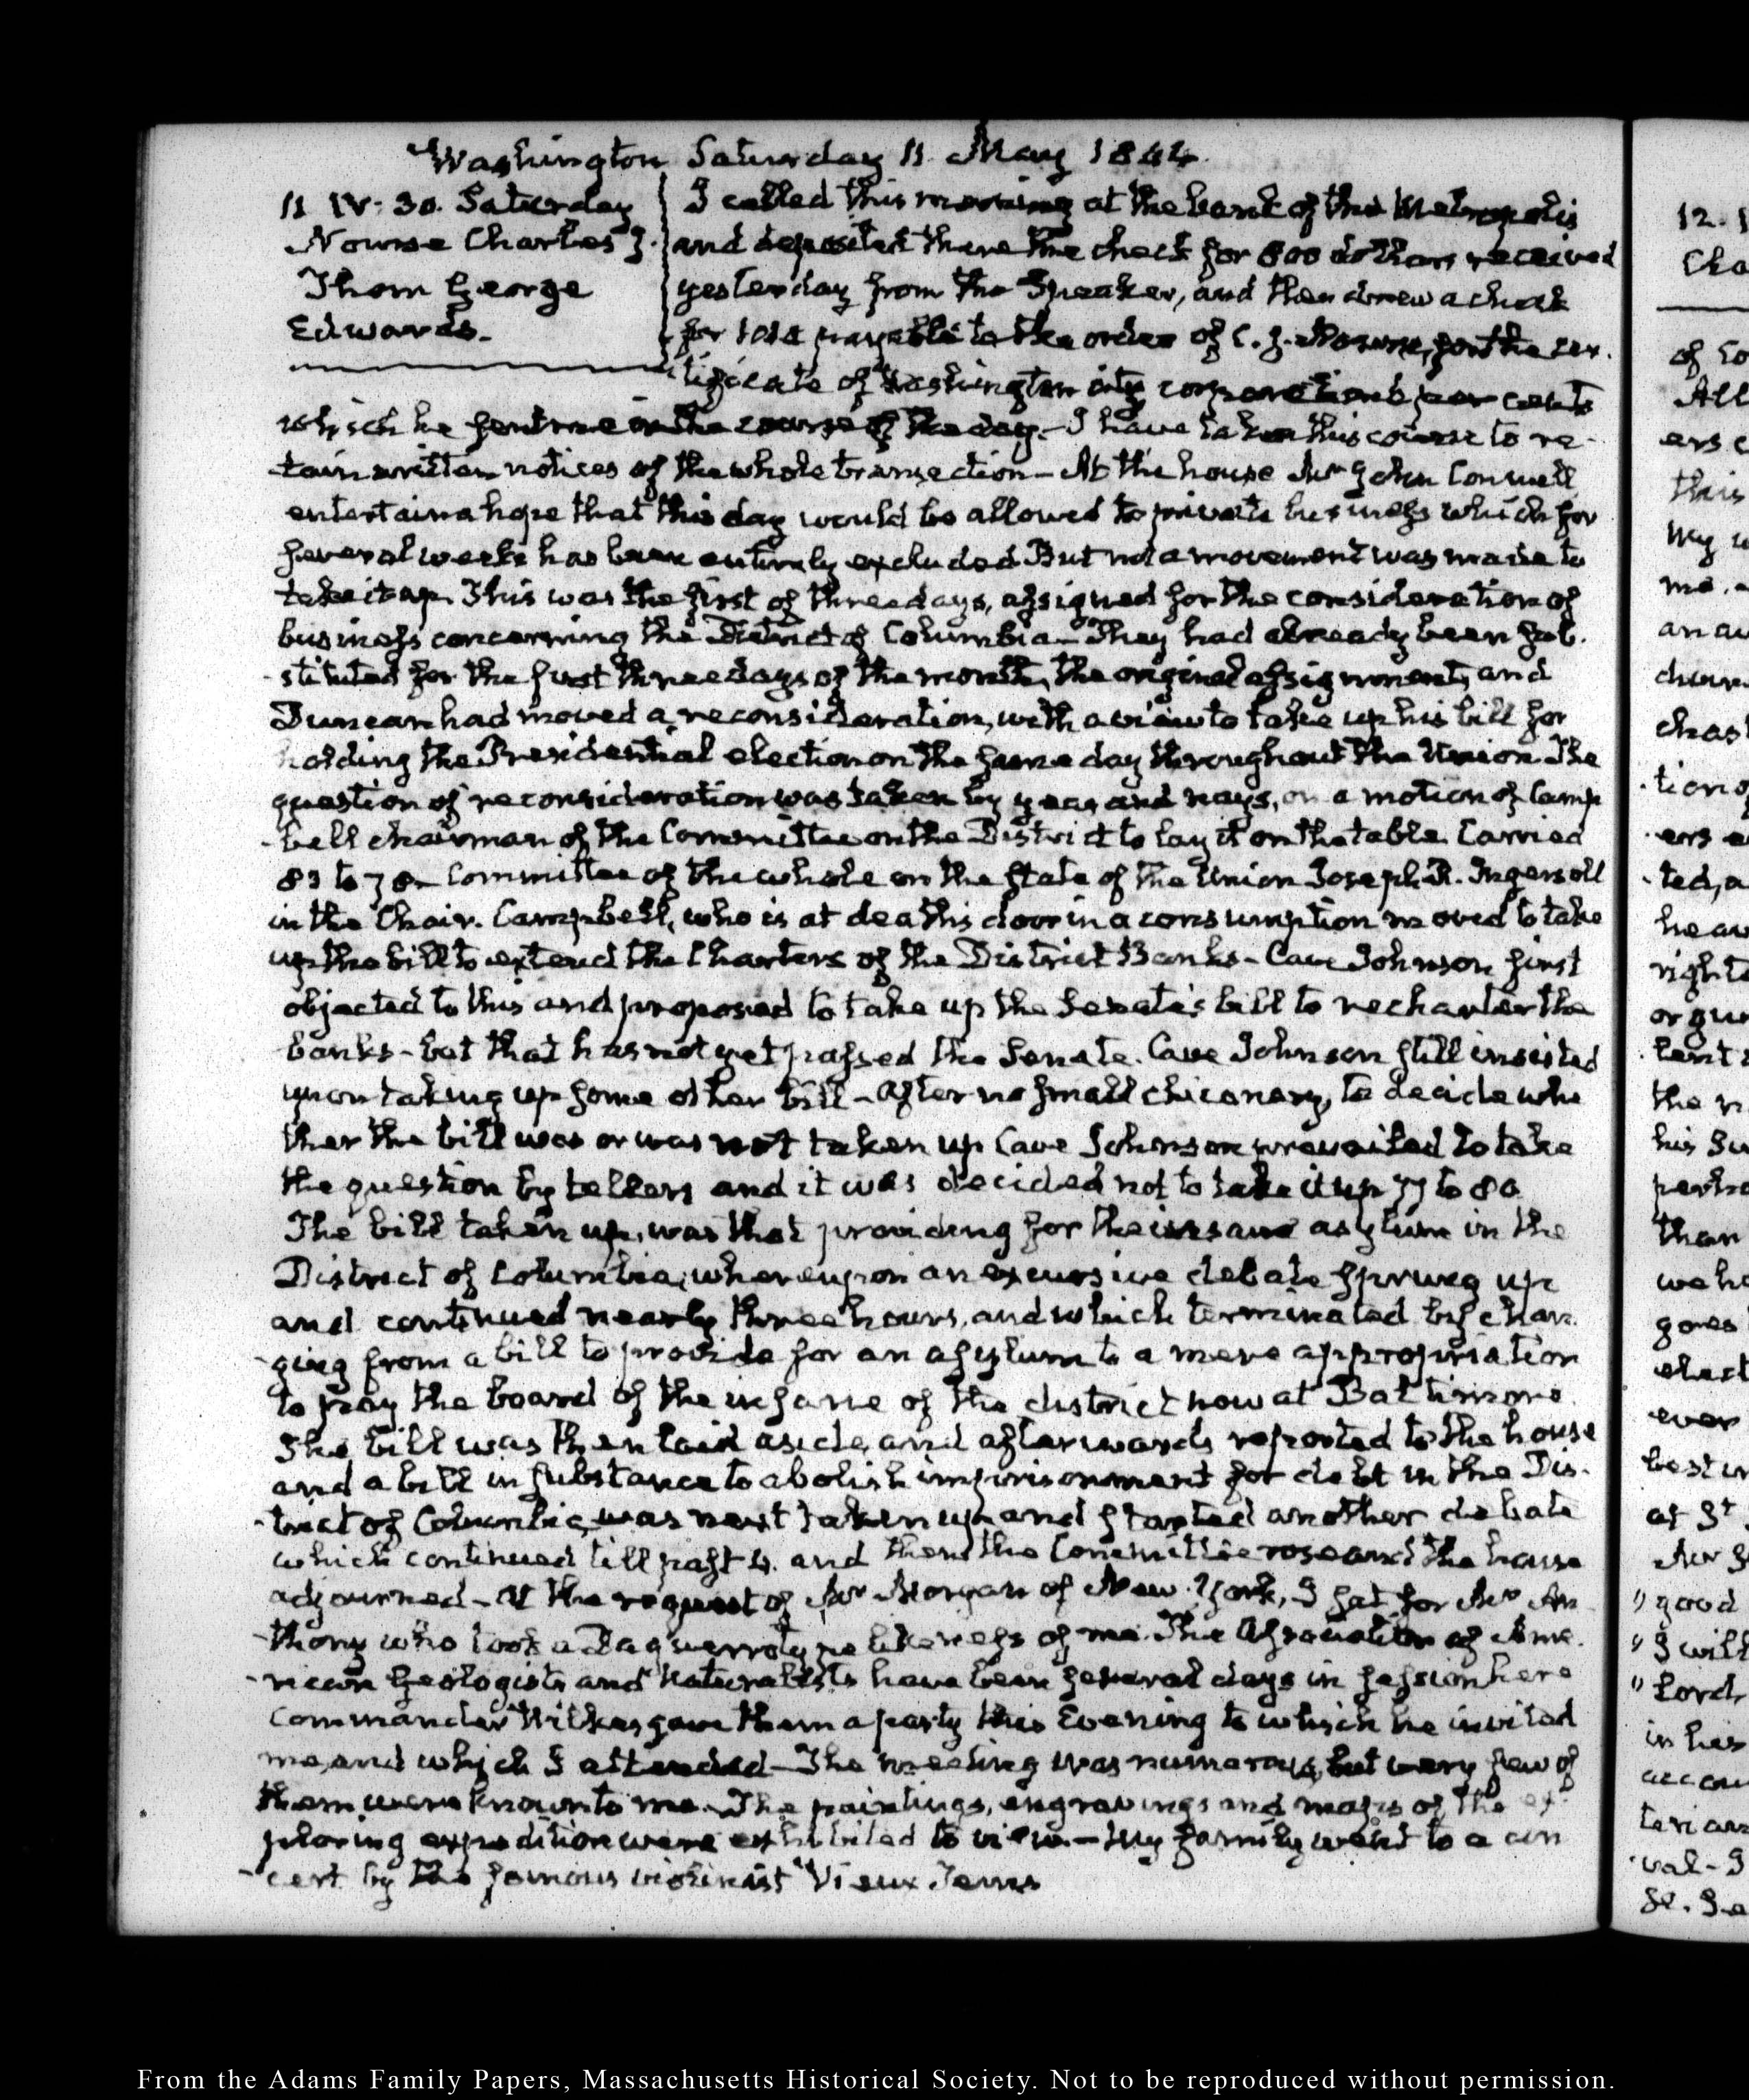 Washington Saturday 11. May 1844.
11 IV: 30. Saturday
Nourse Charles J.
Thom George
Edwards.
I called this morning at the bank of the Metropolis
and deposited there the check for 800 dollars received
yesterday from the Speaker, and then drew a check
for payable to the order of C. J. Nourse, for the cer-
tificate of Washington city corporation 6 per cents
which he sent me in the course of the day. I have taken this course to re-
tain written notices of the whole transaction— At the house Mr John
entertain a hope that this day would be allowed to private business which for
several weeks has been entirely excluded But not a movement was made to
take it up. This was the first of three days, assigned for the consideration of
business concerning the District of Columbia— They had already been sub-
stituted for the first three days of the month, the original assignment, and
Duncan had moved a reconsideration, with a view to take up his bill for
holding the Presidential election on the same day throughout the Union. The
question of reconsideration was taken by yeas and nays, on a motion of Camp
bell chairman of the Committee on the District to lay it on the table. Carried
83 to 78— Committee of the whole on the state of the Union Joseph R. Ingersoll
in the Chair. Campbell, who is at deaths door in a consumption moved to take
up the bill to extend the Charters of the District Banks— Cave Johnson first
objected to this and proposed to take up the Senate's bill to recharter the
banks— but that has not yet passed the Senate. Cave Johnson still insisted
upon taking up some other bill— After no small chicanery, to decide whe
ther the bill was or was not taken up Cave Johnson prevailed to take
the question by tellers and it was decided not to take it up 77 to 80
The bill taken up, was that providing for the insane asylum in the
District of Columbia, whereupon an excursive debate sprung up
and continued nearly three hours, and which terminated by chan-
ging from a bill to provide for an asylum to a mere appropriation
to pay the board of the insane of the district now at Baltimore.
The bill was then laid aside, and afterwards reported to the house
and a bill in substance to abolish imprisonment for debt in the Dis-
trict of Columbia, was next taken up and started another debate
which continued till past 4. and then the Committee rose and the house
adjourned— At the request of Mr Morgan of New-York, I sat for Mr An
thony who took a Daguerrotype likeness of me. The Association of Ame-
rican Geologists and Naturalists have been several days in session here
Commander Wilkes gave them a party this Evening to which he invited
me, and which I attended— The meeting was numerous, but very few of
them were known to me. The paintings, engravings and maps of the ex-
ploring expedition were exhibited to view— My family went to a con
cert by the famous violinist Vieux Tems
12.
Cha
of
All
ers
this
my
me.
an au
chas
tion of
ers
ted, a
he
right
or
lent
the
his
than
we
goes
elect
ever
best
at
Mr
" good
" I will
" Lord,
in his
accou
terian
val- I